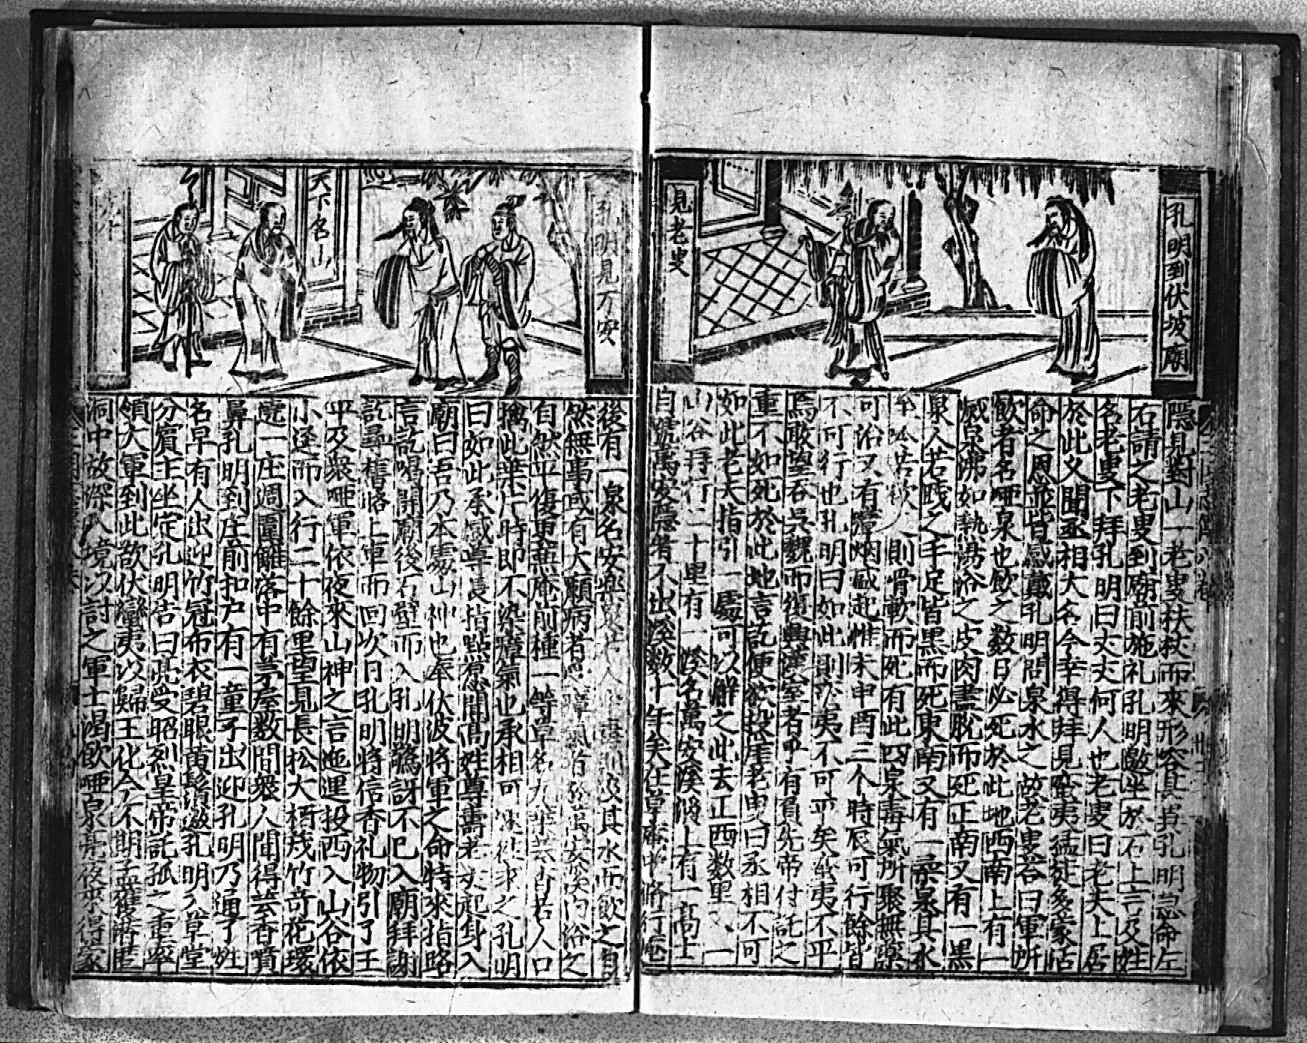 孔明到伏坡廟
見老叟
隱見對山一老叟扶杖而來形容甚異孔明急命左
右請之老叟到廟前施礼孔明邀坐於石上言及姓
名老叟下拜孔明曰丈丈何人也老叟曰老夫上居
於此乂聞丞相大名今幸得拜見蠻夷猛徒多蒙活
命之恩並皆感戴孔明問泉水之故老叟答曰軍所
飲者名啞泉也飲之数日必死於此地西南上有一
滅泉沸如熱湯浴之皮肉盡脫而死正南又有一黑
泉人若踐之手足皆黑而死東南又有一柔泉其水
人則骨軟而死有此四泉毒氣所聚無藥
可治又有瘴烟盛起惟未申酉三个時辰可行餘皆
不可行也孔明曰如此則蛮夷不可平矣蛮夷不平
焉敢望吞吳魏而復興漢室者乎有負先帝付託之
重不如死於此地言訖便欲投崖老叟曰丞相不可
如此老夫指引一處可以解之此去正西数里
山谷拜行二十里有一溪名萬安溪溪上有一高士
自號萬安隱者不出溪数十年矣在草庵中將行庵
孔明見万安
天下名山
後有一泉名安樂泉 其水而飲之自
然無事或有大願病者 瘴氣者於萬安溪内浴之
自然平復更兼庵前種一等草名九葉芸香若人口
擒此葉片時即不染瘴氣也承相可 求之孔明
曰如此承感尊長指點意開高姓尊壽老丈起身入
廟曰吾乃本處山神也奉伏波將軍之命特來指路
言訖喝開廟後石壁而入孔明驚訝不已入廟拜謝
訖尋舊路上車而回次日孔明將信香礼物引了王
平及衆啞軍依夜來山神之言迤逗投西入山谷依
小逕而入行二十餘里望見長松大栢茂竹奇花環
遶一庄週圍籬落中有茅屋数間衆人聞得芸香噴
鼻孔明到庄前扣户有一童子出迎孔明乃通了姓
名早有人出迎竹冠布衣碧眼黄鬚邀孔明入草堂
分賓主坐定孔明告曰亮受昭烈皇帝託孤之重率
領大軍到此欲伏蠻夷以歸王化今不期孟獲潛匿
洞中故深入境以討之軍士渴飲啞泉亮夜來得蒙